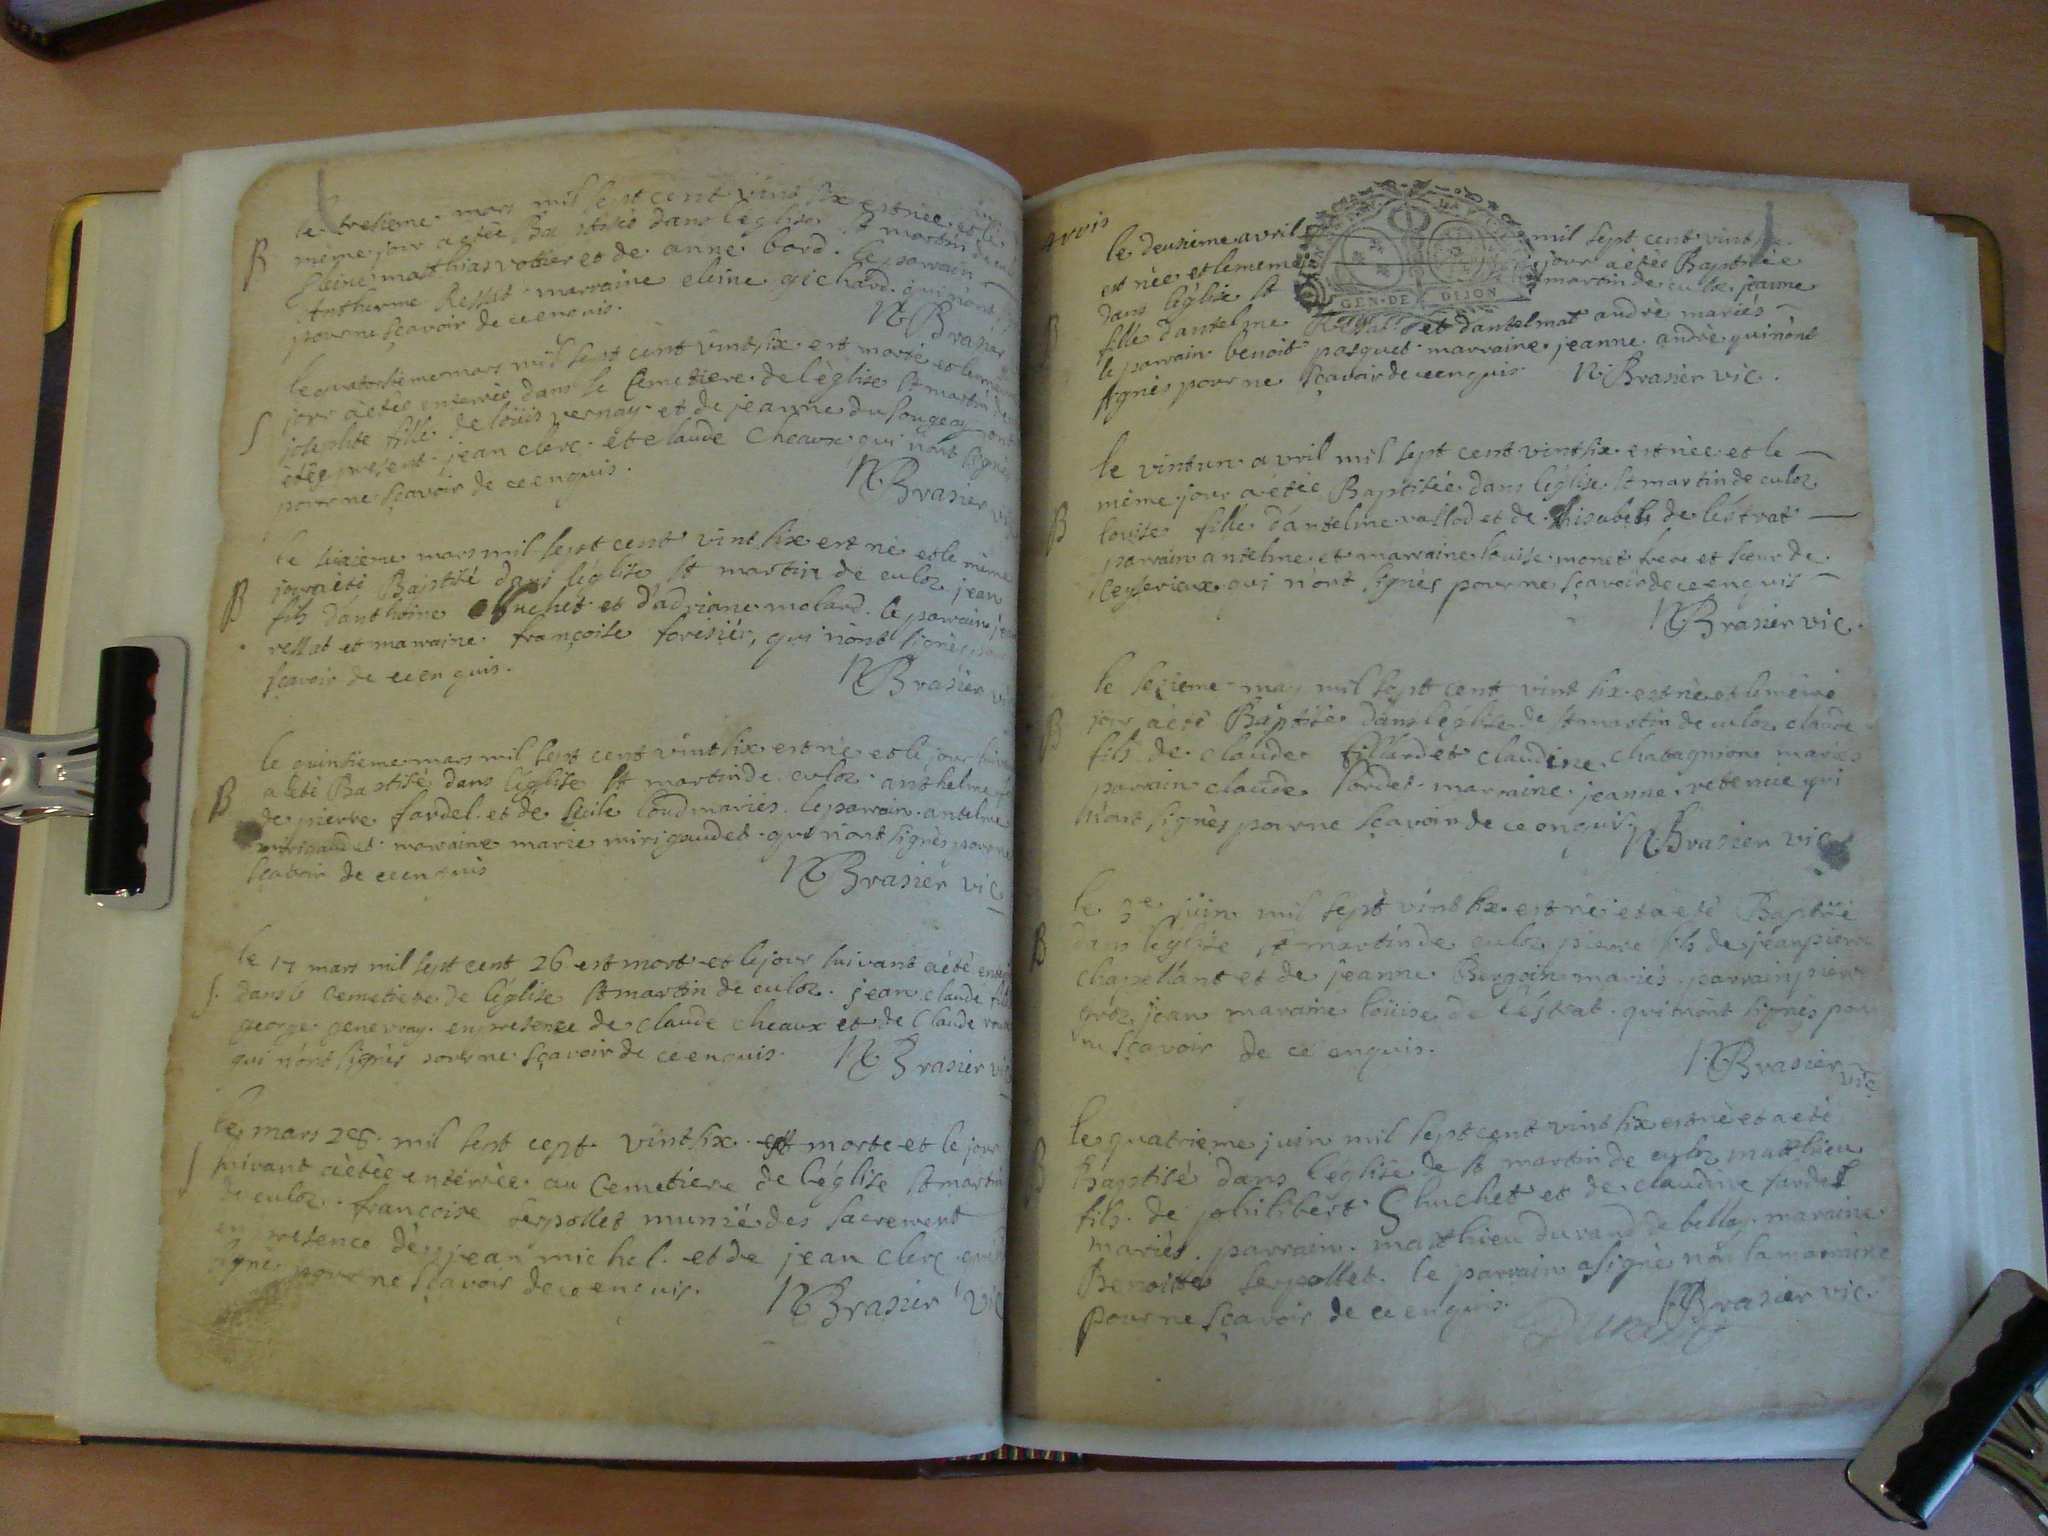 le tresieme mars mil sept cent vint six est née et le
B même jour a étée Ba ptisée dans léglise st martin de culoz
matthias votier et de anne bord. le parrain
Anthelme Ressat marraine eleine gechard qui n'ont
pour ne sçavoir de ce enquis.
N Brasier
le quatorsieme mars mil sept cent vint six est morte et le même
jour a étée enterrée dans le Cemetiere de léglise st martin de
S josephte fille de loüis vernay et de jeanne du fougeay ont
étée present jean clerc et claude cheaux qui n'ont signés
pour ne sçavoir de ce enquis.
N Brasier vic
le sixieme mars mil sept cent vint six est né et le même
B jour a été Baptisé dans léglise st martin de culoz jean
fils danthoine chuchet et d'adriane molard. le parrain jean
ressat et marraine françoise foresier, qui n'ont signés pour
sçavoir de ce enquis.
N Brasier vi
le quinsieme mars mil sept cent vint six est né et le jour suivant
B a été Baptisé dans léglise st martin de culoz anthelme fils
de pierre fardel et de secile loud mariés. le parrain antelme
mirigaudet marraine marie mirigaudet qui n'ont signés pour ne
sçavoir de ce enquis
N Brasier vic
le 17 mars mil sept cent 26 est mort et le jour suivant a été enterré
S. dans le cemetiere de léglise st martin de culoz. jean claude fils
george genevray en presence de claude cheaux et de claude
qui n'ont signés pour ne sçavoir de ce enquis.
N Brasier vic
le mars 26 mil sept cent vint six est morte et le jour
S suivant a étée enterrée au Cemetiere de léglise st martin
de culoz. françoise serpollet munie des sacrement
en presence de jean michel et de jean clerc qui n'ont
signé pour ne sçavoir de ce enquis.
N Brasier vic
GEN. DE DIJON
le deusieme avril mil sept cent vint six
est née et le meme jour a étée Baptisée
dans léglise st martin de culoz jeanne
B fille dantelme Ressat et dantelmat andrè mariés
le parrain benoit pasquet marraine jeanne andrè qui n'ont
signés pour ne sçavoir de ce enquis N Brasier vic.
le vintun avril mil sept cent vint six est née et le
même jour a étée Baptisée dans léglise st martin de culoz
B louise fille dantelme vallod et de lisabets de léstrat
parrain antelme et marraine louise monet frere et soeur de
Ceyserieux qui n'ont signés pour ne sçavoir de ce enquis
N Brasier vic.
le sezieme may mil sept cent vint six est né et le même
B jour a été Baptisé dans léglise de st martin de culoz claude
fils de claude fillard et claudine chatagnion mariés
parrain claude sordet marraine jeanne retenue qui
n'ont signés pour ne sçavoir de ce enquis.
N Brasier vic
le 3e juin mil sept vint six est né et a été Baptisé
B dans léglise st martin de culoz pierre fils de jean pierre
chapellant et de jeanne Burgoin mariés parrain pierre
jean maraine loüise de léstrat qui n'ont signés pour
ne sçavoir de ce enquis.
N Brasier vic
le quatrieme juin mil sept cent vint six est né et a été
B Baptisé dans léglise de st martin de culoz matthieu
fils de philibert Chuchet et de claudine fardel
mariés. parrain matthieu durand de belley maraine
Benoitte serpollet. le parrain a signé non la marraine
pour ne sçavoir de ce enquis.
N Brasier vic.
Durand